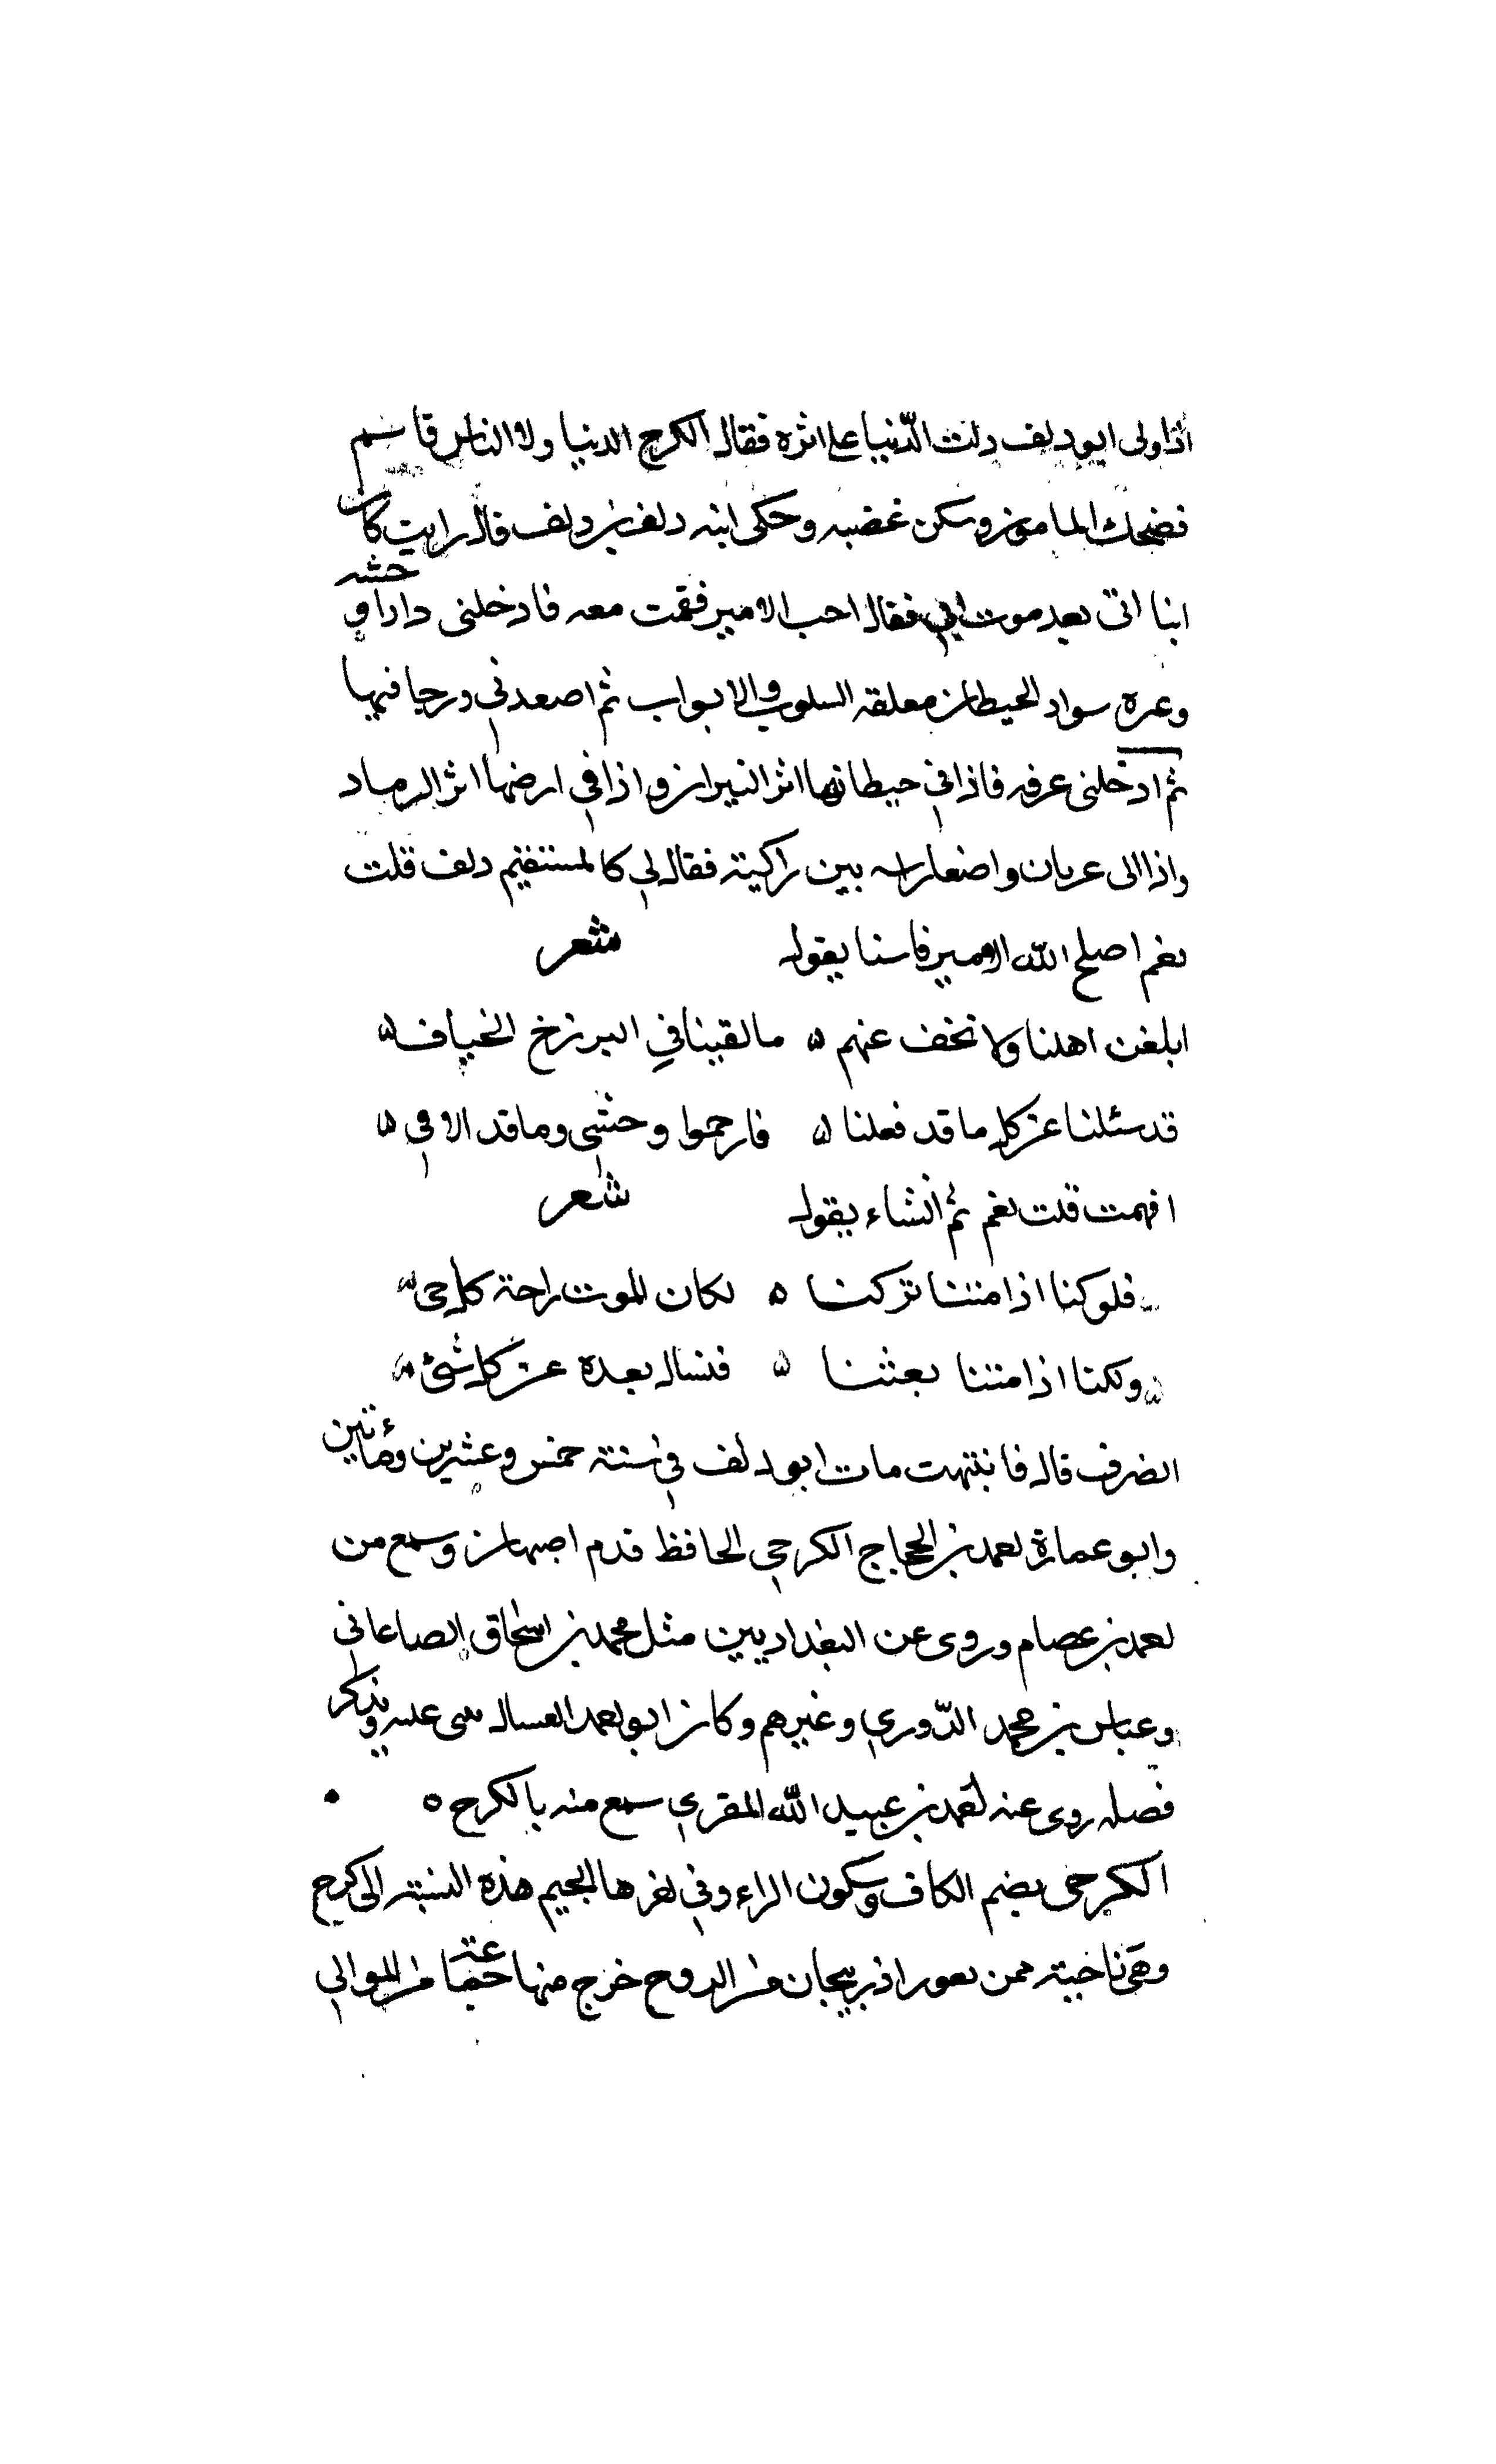 اذا ولى ابو دلف دلت الدّنيا على اثره فقال الكرج الدنيا ولا الناس قاسم
فضحك المامون وسكن غضبه وحكى ابنه دلف بن دلف قال رايت كان
اتنا اتى بعد موت ابي فقال احب الامير فقمت معه فادخلنى دارا وحشه
وعره سواد الحيطان معلقه السلوب والابواب ثم اصعدنى درجا فيها
ثم ادخلنى عرفه فاذا في حيطانها اثر النيران واذا في ارضها اثر الرماد
واذا الى عريان واضعا راسه بين راكيته فقال لي كالمستفيم دلف قلت
نعم اصلح الله الامير فاسنا يقول شعر
ابلغن اهلنا ولا نخف عنهم ه ما لقينا في البرزخ الخياف ه
قد سئلنا عن كل ما قد فعلنا ه فارحموا وحشى وما قد الاقي ه
افهمت قلت نعم ثم انشاء يقول شعر
فلو كنا اذا متنا تركنا ه لكان الموت راحة كل حى
ولكنا اذا متنا بعثنا ه فنسال بعده عن كل شئ
انصرف قال فانتبهت مات ابو دلف في سنة خمس وعشرين ومائتين
وابو عمارة لعمد بن الحجاج الكرجي الحافظ قدم اصبهان وسمع من
لعمد بن عصام وروى عن البغداديين مثل محمد بن اسحاق الصاعاني
وعباس بن محمد الدّوري وغيرهم وكان ابو لعمد العسال عليه ويذكر
فضله روى عنه لعمد بن عبيد الله المقري سمع منه بالكرج ه
الكرجى بضم الكاف وسكون الراء وفي لغرها الجيم هذه النسبة الى كرج
وهى ناحية من لعور اذربيجان من الروح خرج منها جماعة من الموالي